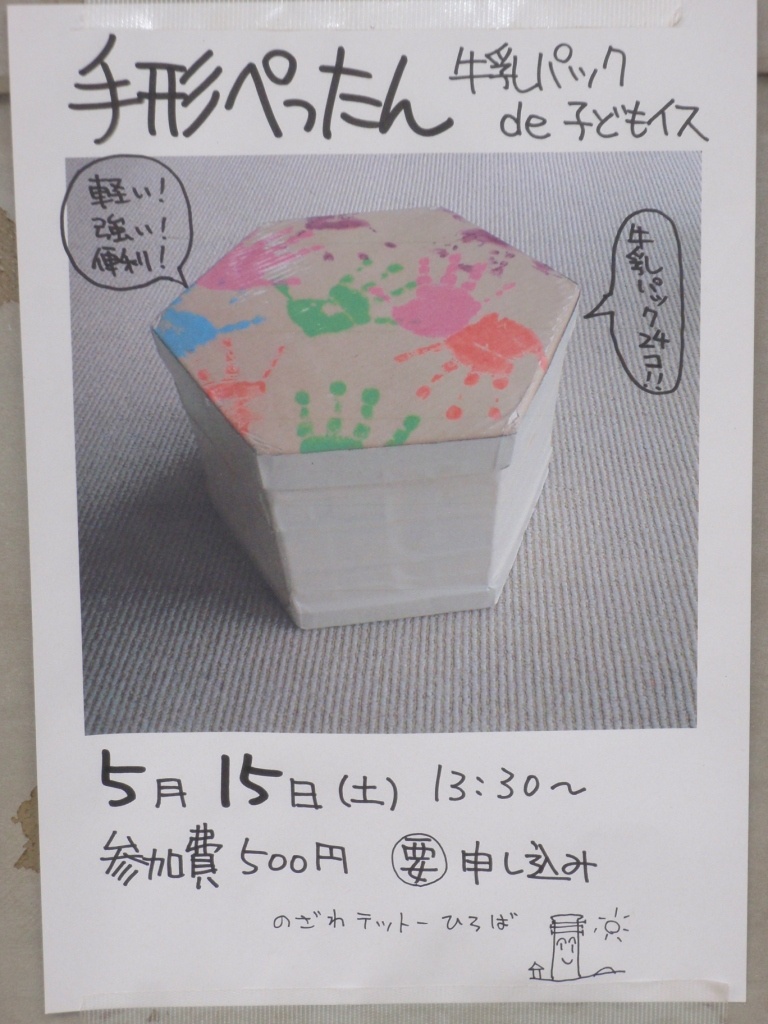 手形ぺったん
牛乳パック
de 子どもイス
軽い!
強い!
便利!
牛乳パック24コ!!
5月15日(土) 13:30〜
参加費 500円 要 申し込み
のざわテットーひろば